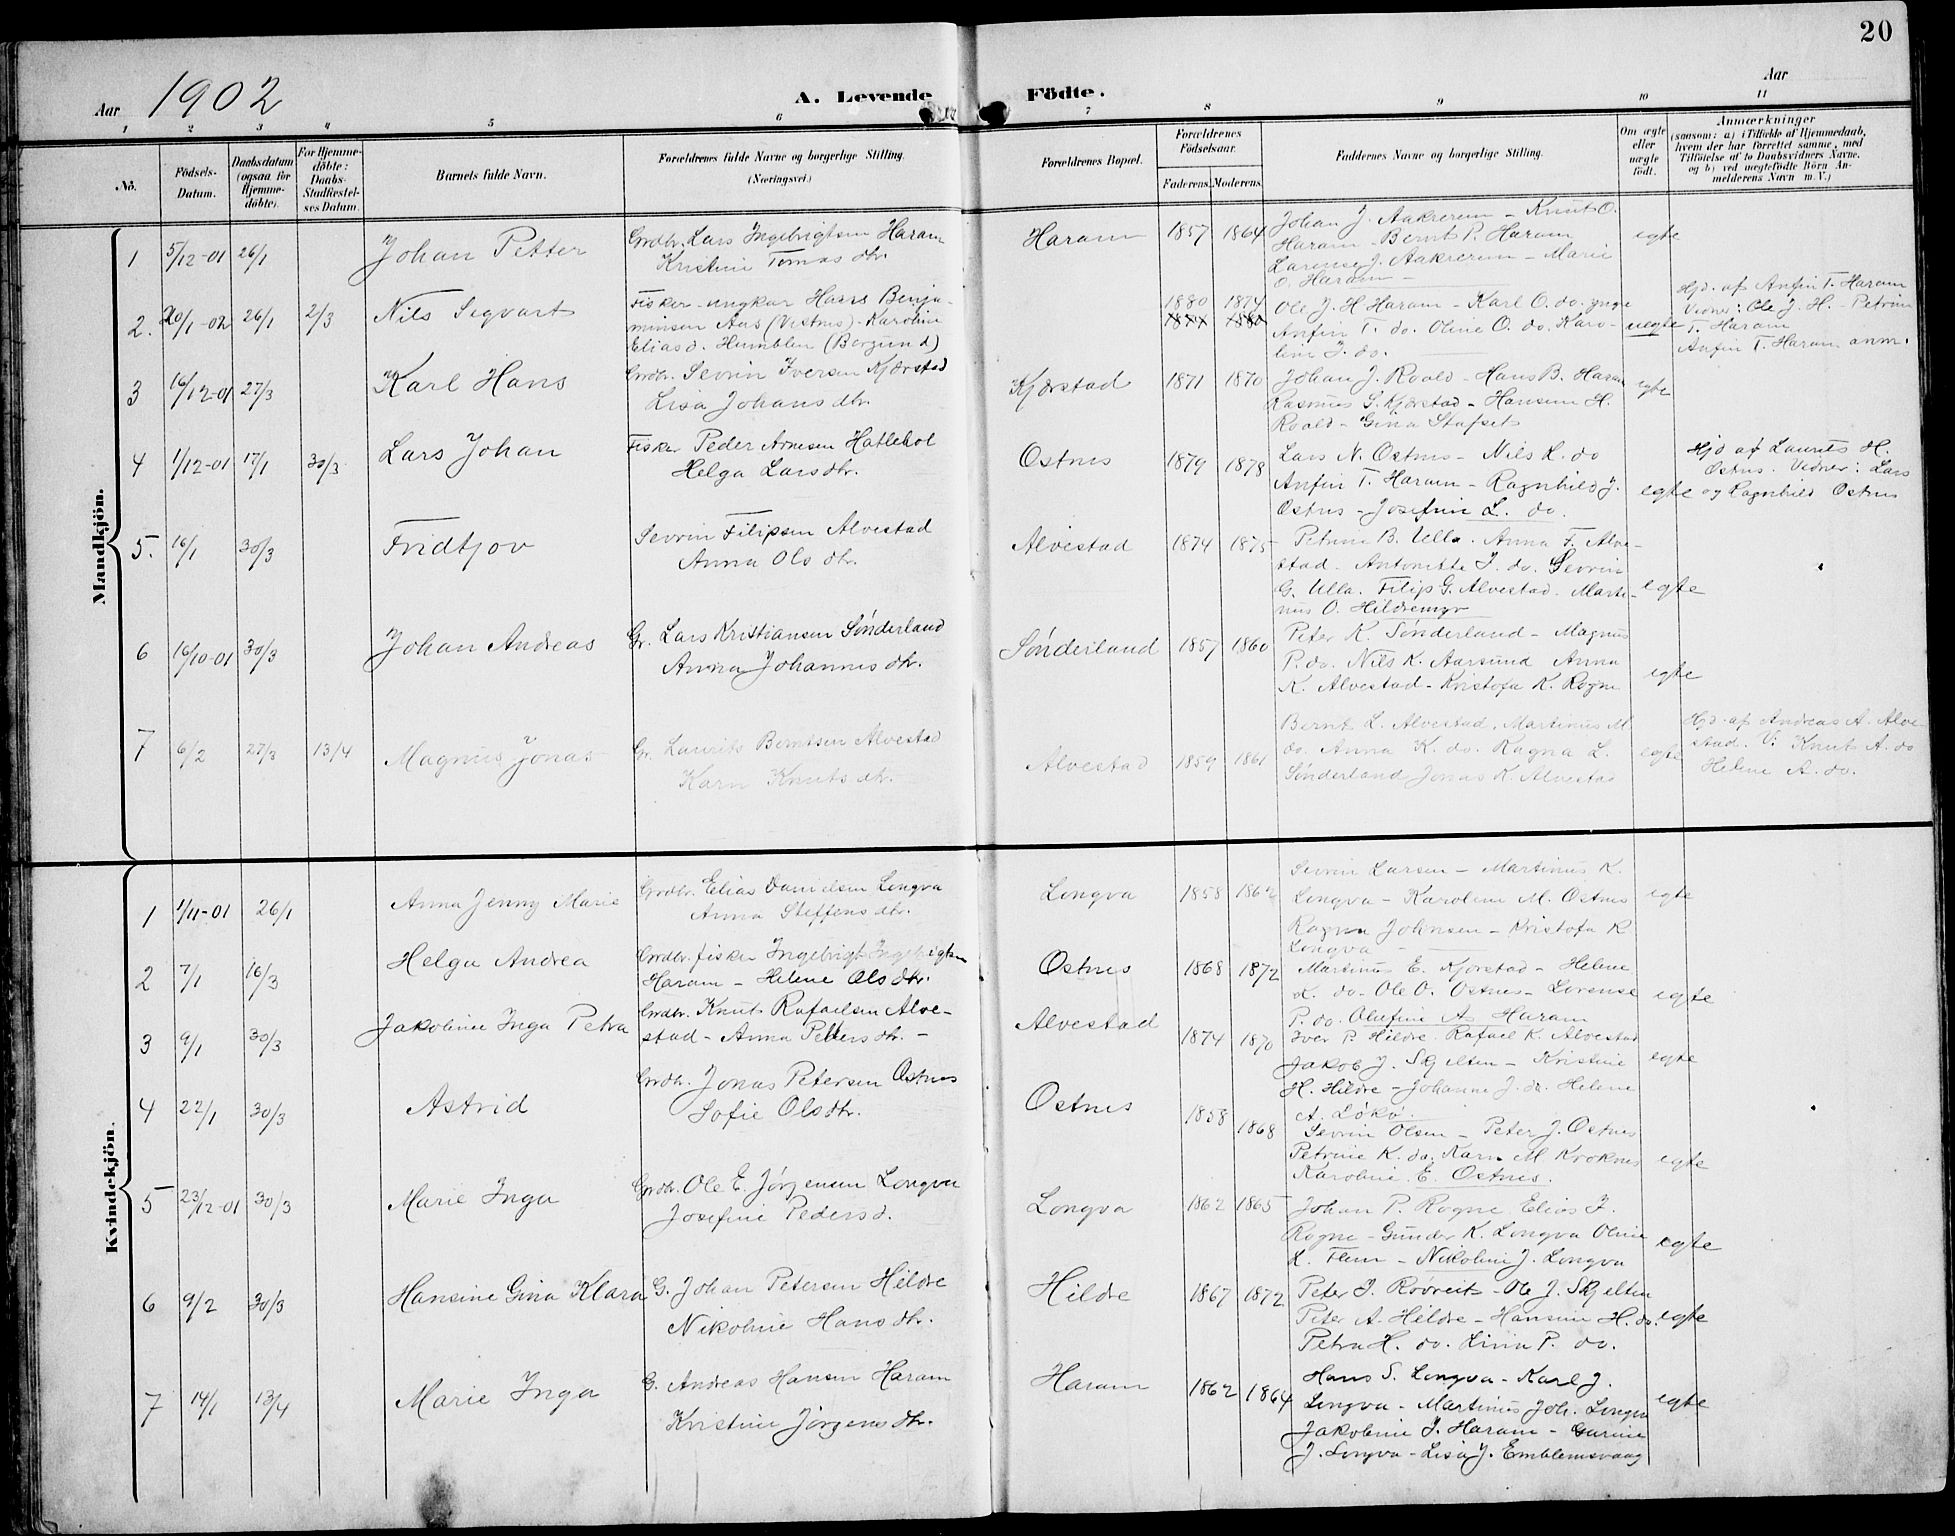 20
Aar 1902
A. Levende Födte.
Aar
1 2 3 4 5 6 7 8 9 10 11
No.
Födsels-Datum.
Daabsdatum (ogsaa for Hjemme-döbte).
For Hjemme-döbte: Daabs-Stadfæstel-ses Datum.
Barnets fulde Navn.
Forældrenes fulde Navne og borgerlige Stilling. (Næringsvei.)
Forældrenes Bopæl.
Forældrenes Födselsaar.
Faderens. Moderens.
Faddernes Navne og borgerlige Stilling.
Om ægte eller uægte födt.
Anmærkninger
(saasom: a) i Tilfælde af Hjemmedaab, hvem der har forrettet samme, med Tilföielse af to Daabsvidners Navne, og b) ved uægtefödte Börn Anmelderens Navn m. V.)
Mandkjön.
1 5/12-01 26/1 Johan Petter
Grdbr. Lars Ingebrigtsen Haram
Kristine Tomasdtr.
Haram 1857 1864
Johan J. Aakrerem - Knut O.
Haram - Bernt P. Haram
Larense J. Aakrerem - Marie
O. Haram -
egte
2. 20/1-02 26/1 2/3 Nils Sigvart
Fisker - ungkar Hans Benja-
minsen Aas (Vestnes) - Karoline
Eliasd. Humblen (Borgund)
1880 1874
Ole J. H Haram - Karl O. do. yngre
Anfin T. do. Oline O. do. Karo-
line J. do.
uegte
Hjd. af Anfin T. Haram
Vidner: Ole J. H. - Petrine
T. Haram
Anfin T. Haram anm.
3 16/12-01 27/3 Karl Hans
Grdbr. Sevrin Iversen Kjærstad
Lisa Johansdtr.
Kjærstad 1871 1870
Johan J. Roald - Hans B. Haram
Rasmus S. Kjærstad - Hansine H.
Roald - Gina Stafset
egte
4 1/12-01 17/1 30/3 Lars Johan
Fisker Peder Arnesen Hatlehol
Helga Larsdtr.
Ostnes 1879 1878
Lars N. Ostnes - Nils L. do
Anfin T. Haram - Ragnhild J.
Ostnes - Josefine L. do.
egte
Hjd af Laurits H.
Ostnes. Vidner: Lars
og Ragnhild Ostnes
5. 16/1 30/3 Fridtjov
Sevrin Filipsen Alvestad
Anna Olsdtr.
Alvestad 1874 1875
Petrine B. Ulla. Anna F. Alve-
stad. Antonette J. do. Sevrin
G. Ulla. Filip G. Alvestad. Marti-
nus O. Hildremyr
egte
6 16/10-01 30/3 Johan Andreas
Gr. Lars Kristiansen Sønderland
Anna Johannesdtr.
Sønderland 1857 1860
Peter K. Sønderland - Magnus
P. do. Nils K. Aarsund Anna
K. Alvestad - Kristofa K. Rogne
egte
7 6/2 27/3 13/4 Magnus Jonas
Gr. Laurits Berntsen Alvestad
Karn Knutsdtr.
Alvestad 1859 1861
Bernt L. Alvestad. Martinus M
do. Anna K. do. Ragna L.
Sønderland Jonas K. Alvestad
egte
Hjd. af Andreas A. Alve-
stad. V: Knut A. do
Helene A. do.
Kvindekjön.
1 1/11-01 26/1 Anna Jenny Marie
Grdbr. Elias Danielsen Longva
Anna Steffensdtr.
Longva 1858 1862
Sevrin Larsen - Martinus K.
Longva - Karoline M. Ostnes
Ragna Johnsen - Kristofa R
Longva -
egte
2 7/1 16/3 Helga Andrea
Grdbr. fisker Ingebrigt Ingebrigtsen
Haram - Helene Olsdtr.
Ostnes 1868 1872
Martinus E. Kjærstad - Helene
L. do. Ole O. Ostnes - Lorense
P. do. Olufine A. Haram
egte
3 9/1 30/3 Jakobine Inga Petra
Grdbr. Knut Rafaelsen Alve-
stad - Anna Pettersdtr. -
Alvestad 1874 1870
Iver P. Hildre. Rafael K. Alvestad
Jakob J. Skjelten - Kristine
H. Hildre - Johanne J. do. Helene
A. Løkø.
egte
4 22/1 30/3 Astrid
Grdbr. Jonas Petersen Ostnes
Sofie Olsdtr.
Ostnes 1858 1868
Sevrin Olsen - Peter J. Ostnes
Petrine K. do. Karn M. Kroknes
Karoline E. Ostnes.
egte
5 23/12-01 30/3 Marie Inga
Grdbr. Ole E. Jörgensen Longva
Josefine Pedersd.
Longva 1862 1865
Johan P. Rogne Elias J.
Rogne - Gunder K. Longva Oline
L. Flem - Nikoline J. Longva
egte
6 9/2 30/3 Hansine Gina Klara
G. Johan Petersen Hildre
Nikoline Hansdtr.
Hildre 1867 1872
Peter J. Røvreit - Ole J. Skjelten
Peter A. Hildre - Hansine H. do.
Petra H. do. Lina P. do.
egte
7 14/1 13/4 Marie Inga
G. Andreas Hansen Haram
Kristine Jörgensdtr.
Haram 1862 1864
Hans S. Longva - Karl J.
Longva - Martinus Joh. Longva
Jakobine J. Haram - Gurine
J. Longva - Lisa J. Emblemsvaag
egte